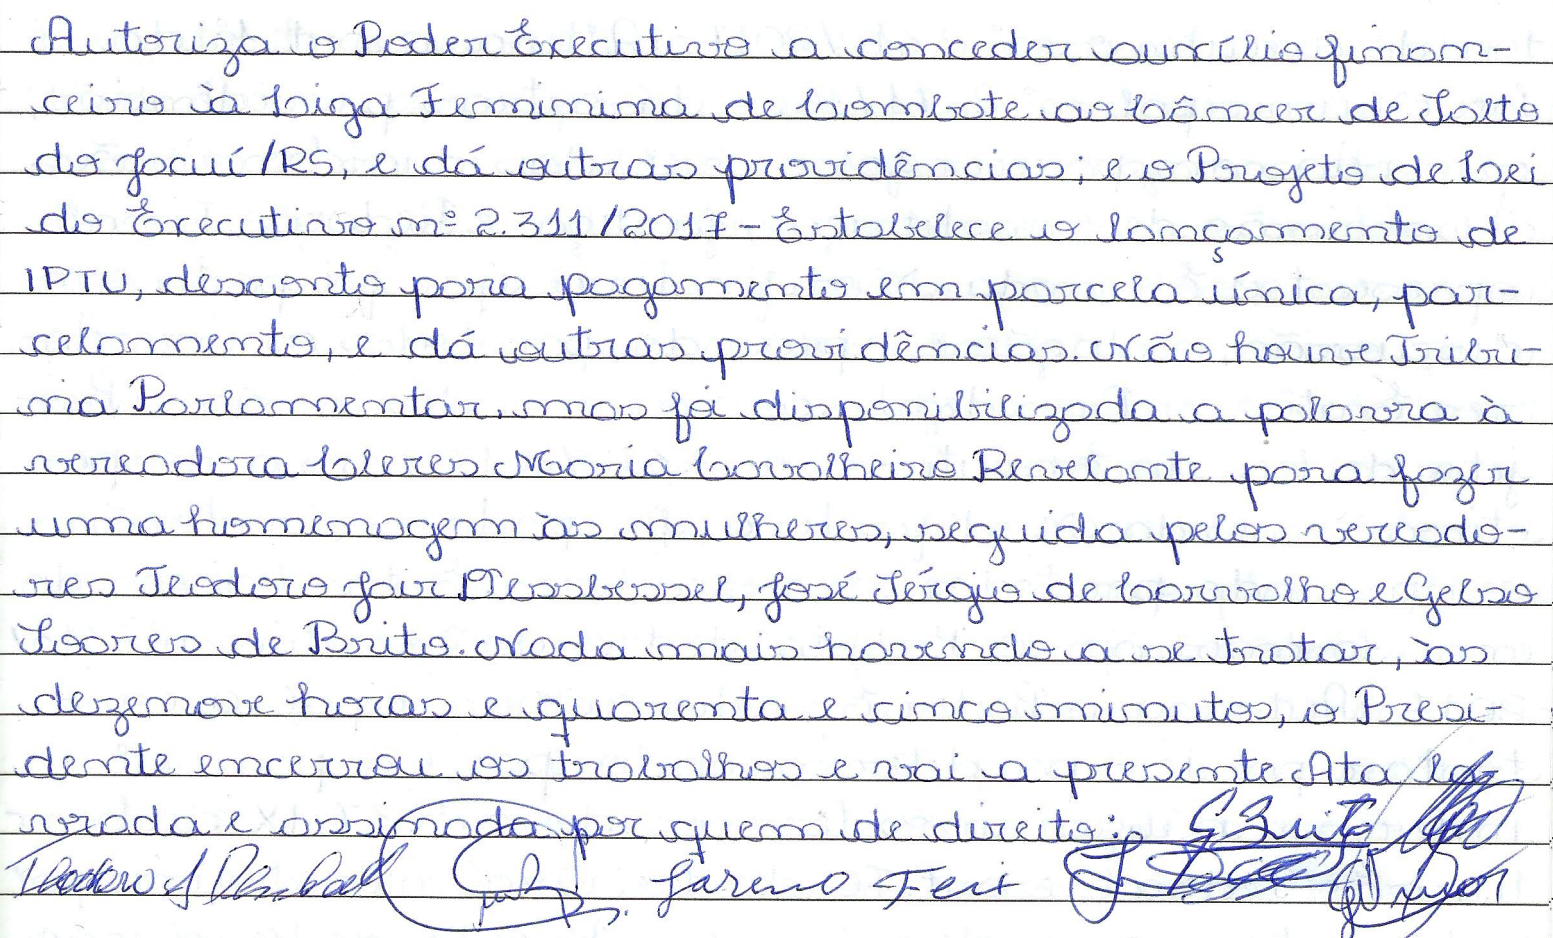 Autoriza o Poder Executivo a conceder auxílio finan-
ceiro à Liga Feminina de Combate ao Câncer de Salto
do Jacuí/RS, e dá outras providências; e o Projeto de Lei
do Executivo nº 2.311/2017 - Estabelece o lançamento de
IPTU, desconto para pagamento em parcela única, par-
celamento, e dá outras providências. Não houve Tribu-
na Parlamentar, mas foi disponibilizada a palavra à
vereadora Cleres Maria Cavalheiro Revelante para fazer
uma homenagem às mulheres, seguida pelos vereado-
res Teodoro Jair Dessbessel, José Sérgio de Carvalho e Gelso
Soares de Brito. Nada mais havendo a se tratar, às
dezenove horas e quarenta e cinco minutos, o Presi-
dente encerrou os trabalhos e vai a presente Ata la-
vrada e assinada por quem de direito: GBrito
Teodoro J